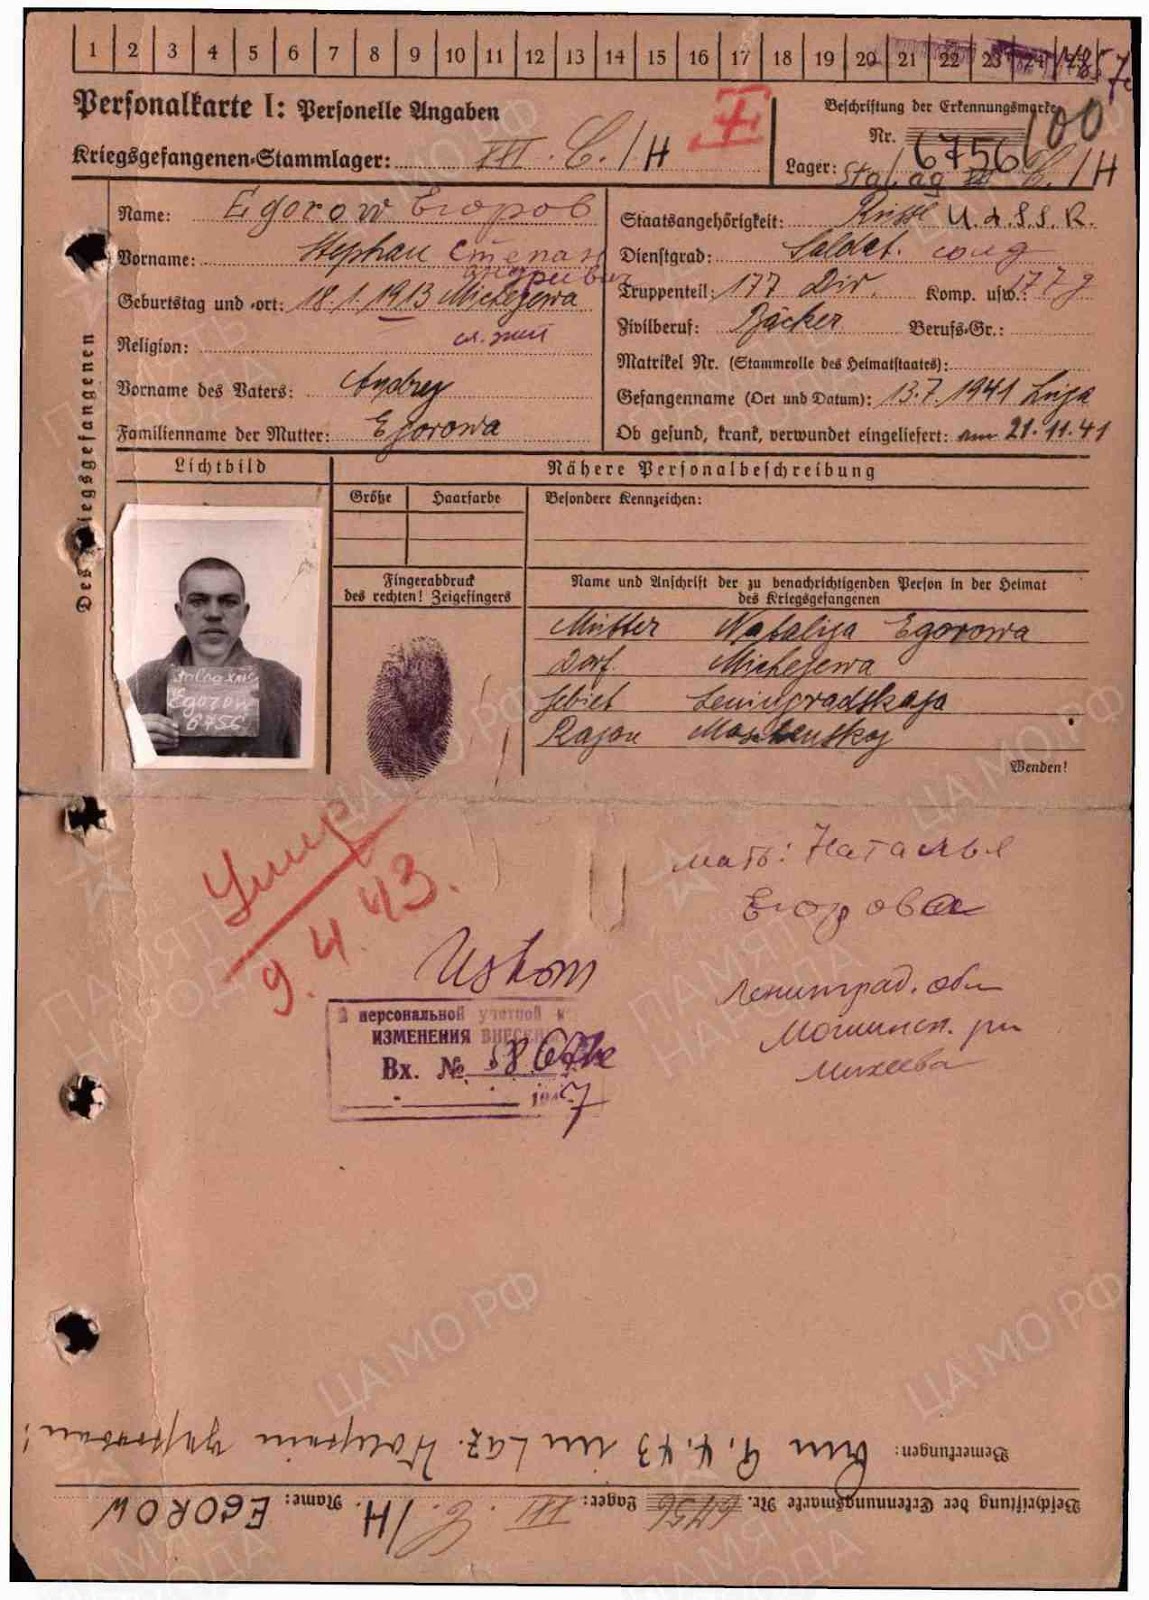 1 2 3 4 5 6 7 8 9 10 11 12 13 14 15 16 17 18 19 20 21 22 23 24 25
Personalkarte I: Personelle Angaben
Kriegsgefangenen-Stammlager: C./H
Beschriftung der Erkennungsmarke
Nr. 6756
Lager: Stalag C./H
Des Kriegsgefangenen
Name: Egorow Егоров
Vorname: Stephan Степан
Geburtstag und -ort: 18.1.1913 Michejewa
Religion:
Vorname des Vaters: Andrey
Familienname der Mutter: Egorowa
Staatsangehörigkeit: U.d.S.S.R.
Dienstgrad: Soldat. солд
Truppenteil: 177 Div. Komp. usw.: 177 д
Zivilberuf: Bäcker Berufs-Gr.:
Matrikel Nr. (Stammrolle des Heimatstaates):
Gefangenname (Ort und Datum): 13.7.1941 Luga
Ob gesund, krank, verwundet eingeliefert: am 21.11.41
Lichtbild
Nähere Personalbeschreibung
Größe Haarfarbe Besondere Kennzeichen:
Fingerabdruck
des rechten! Zeigefingers
Name und Anschrift der zu benachrichtigenden Person in der Heimat
des Kriegsgefangenen
Mutter Natalija Egorowa
Dorf Michejewa
Gebiet Leningradskaja
Rajon
Egorow
6756
Wenden!
Умер
9.4.43.
мать: Наталья
Егорова
Ленинград. обл
Мошинск. рн
Михеева
персональной учетной к
ИЗМЕНЕНИЯ ВНЕСЕН
Вх. №
194
Bemerkungen: Am 9.4.43 im Laz. verstorben!
Beschriftung der Erkennungsmarke Nr. 6756 Lager: C./H. Name: EGOROW
ЦА МО РФ
ПАМЯТЬ
НАРОДА